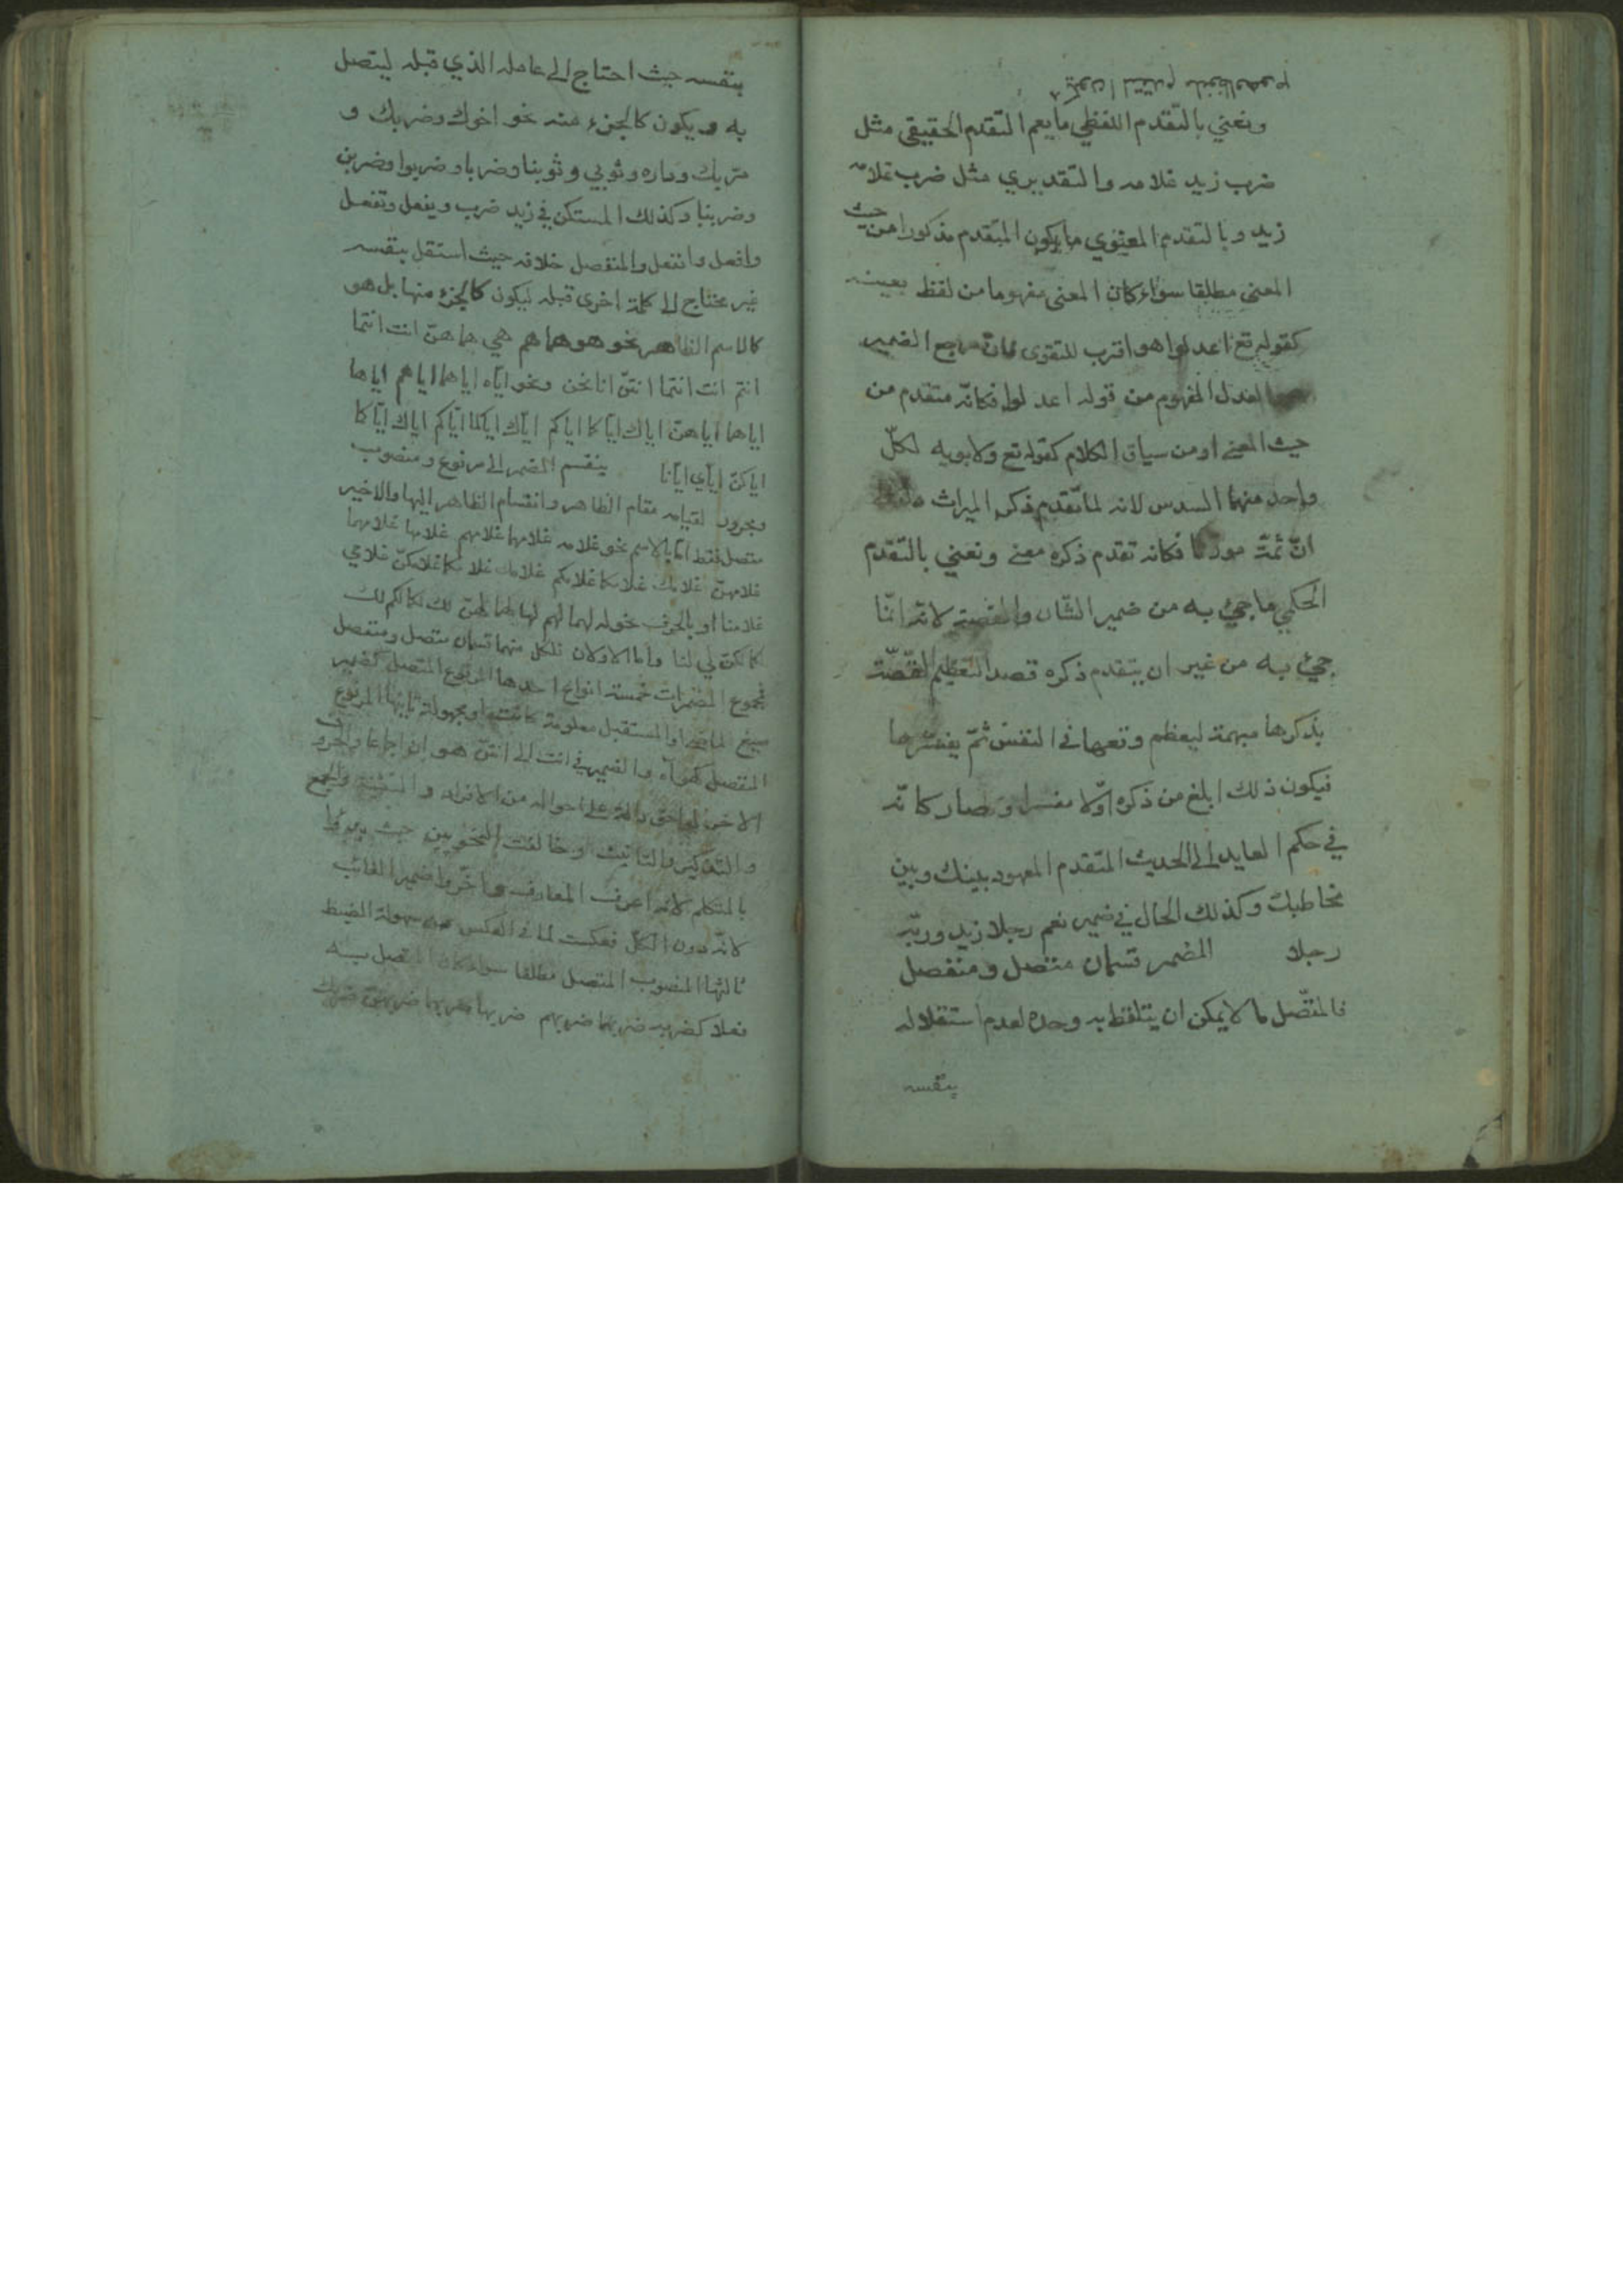 ونعني بالتقدم اللفظي ما يعم التقدم الحقيقي مثل
ضرب زيد غلامه والتقديري مثل ضرب غلامه
زيد وبالتقدم المعنوي ما يكون المتقدم مذكورا من حيث
المعنى مطلقا سواء كان المعنى مفهوما من لفظ بعينه
كقوله تع اعدلوا هو اقرب للتقوى فان مرجع الضمير
العدل المفهوم من قوله اعدلوا فكانّه متقدم من
حيث المعنى او من سياق الكلام كقوله تع ولابويه لكلّ
واحد منهما السدس لانه لما تقدم ذكر الميراث
انّ ثمّة مورثا فكانه تقدم ذكره معنى ونعني بالتقدم
الحكمي ما جيئ به من ضمير الشّان والقصة لانّه انّما
جيئ به من غير ان يتقدم ذكره قصدا لتعظيم القصّة
بذكرها مبهمة ليعظم وقعها في النفس ثمّ يفسّرها
فيكون ذلك ابلغ من ذكره اوّلا مفسرا وصار كانّه
في حكم العايد الى الحديث المتقدم المعهود بينك وبين
مخاطبك وكذلك الحال في ضمير نعم رجلا زيد وربّه
رجلا المضمر قسمان متصل ومنفصل
فالمتّصل ما لا يمكن ان يتلفظ به وحده لعدم استقلاله
بنفسه
بنفسه حيث احتاج الى عامله الذي قبله ليتصل
به ويكون كالجزء منه نحو اخوك وضربك و
مرّ بك وداره وثوبي وثوبنا وضربا وضربوا وضربن
وضربنا وكذلك المستكن في زيد ضرب ويفعل وتفعل
وافعل ونفعل والمنفصل خلافه حيث استقل بنفسه
غير محتاج الى كلمة اخرى قبله ليكون كالجزء منها بل هو
كالاسم الظاهر نحو هو هما هم هي هما هنّ انت انتما
انتم انت انتما انتنّ انا نحن ونحو ايّاه اياهما اياهم اياها
اياهما اياهنّ اياك ايّاكما اياكم ايّاك ايّاكما
اياكنّ ايّاي ايّانا ينقسم المضمر الى مرفوع ومنصوب
ومجرور لقيامه مقام الظاهر وانقسام الظاهر اليها والاخير
متصل فقط امّا بالاسم نحو غلامه غلامهما غلامهم غلامها غلامهما
غلامهنّ غلامك غلامكما غلامكم غلامك غلامكما غلامكنّ غلامي
غلامنا او بالحرف نحو له لهما لهم لها لهما لهنّ لك لكما لكم لك
لكما لكنّ لي لنا واما الاولان فلكل منهما قسمان متصل ومنفصل
فمجموع المضمرات خمسة انواع احدها المرفوع المتصل كضمير
صيغ الماضي او المستقبل معلومة كانت او مجهولة ثانيها المرفوع
المنفصل والضمير في انت الى انتنّ هو ان اجماعا والحروف
الاخر لواحق دالة على احواله من الافراد والتثنية والجمع
والتذكير والتانيث وخالفت النحويين حيث بدءوا
بالمتكلم لانه اعرف المعارف واخّروا ضمير الغائب
لانّه دون الكلّ فعكست لما في العكس من سهولة الضبط
ثالثها المنصوب المتصل مطلقا سواء كان المتصل به
فعلا كضربه ضربهما ضربهم ضربها ضربهما ضربهنّ ضربك